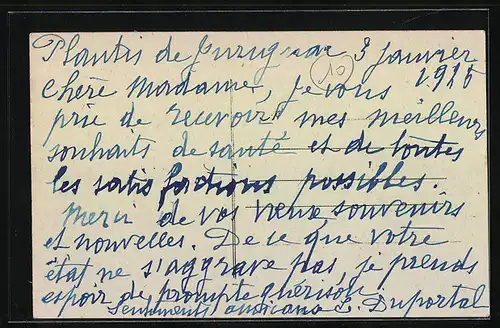 Plantis de 3 janvier
1915
Chère Madame, je vous
prie de recevoir mes meilleurs
souhaits de santé et de toutes
les satisfactions possibles.
Merci de vos vœux souvenirs
et nouvelles. De ce que votre
état ne s'aggrave pas, je prends
espoir de prompte guérison.
Sentiments E. Duportal
10